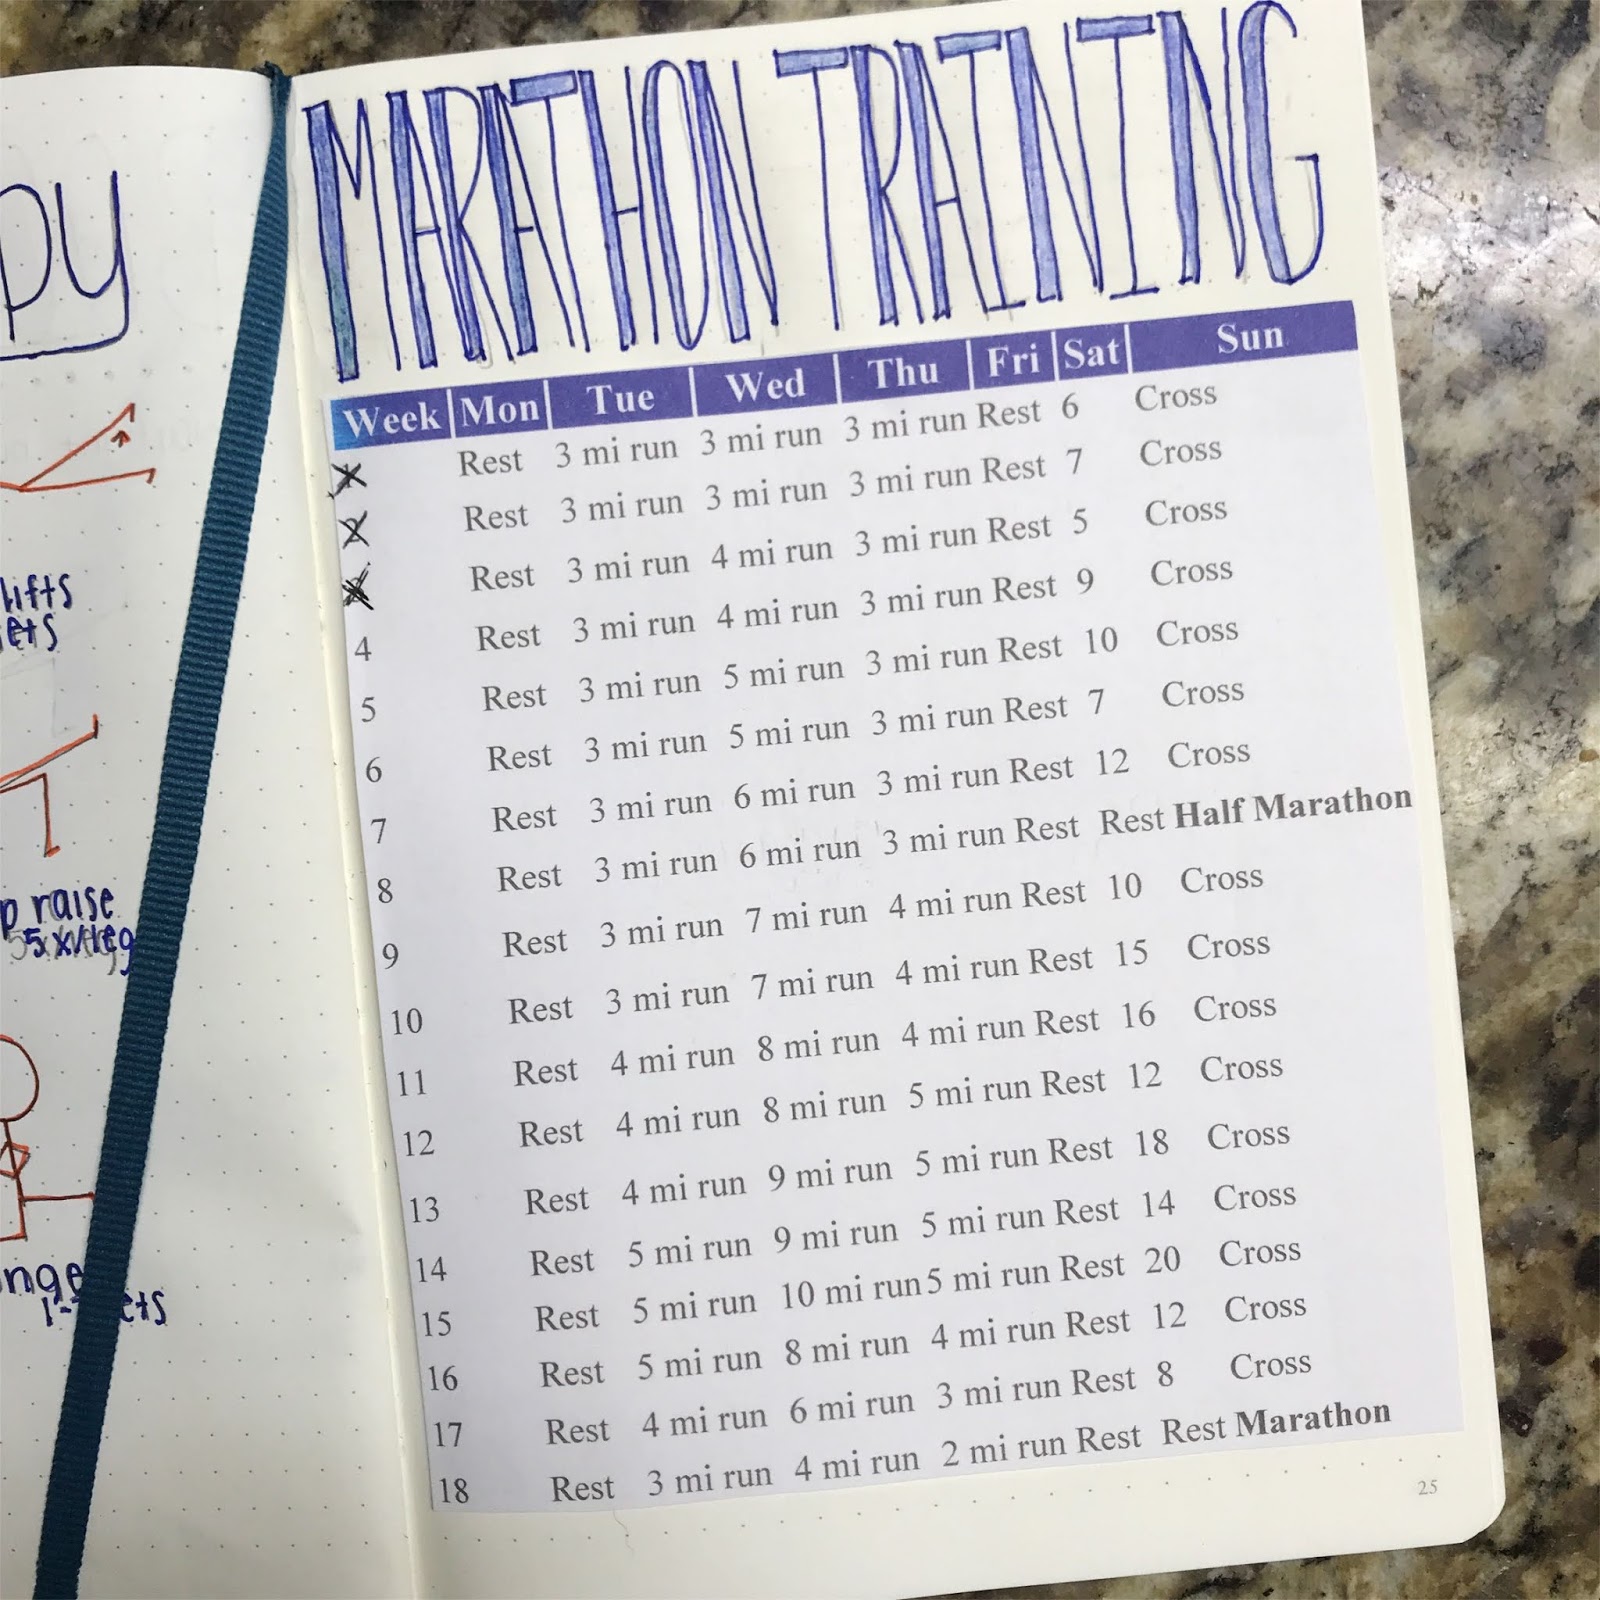 py
lifts
ets
p raise
5x/leg
MARATHON TRAINING
Week Mon Tue Wed Thu Fri Sat Sun
Rest 3 mi run 3 mi run 3 mi run Rest 6 Cross
2 Rest 3 mi run 3 mi run 3 mi run Rest 7 Cross
Rest 3 mi run 4 mi run 3 mi run Rest 5 Cross
4 Rest 3 mi run 4 mi run 3 mi run Rest 9 Cross
5 Rest 3 mi run 5 mi run 3 mi run Rest 10 Cross
6 Rest 3 mi run 5 mi run 3 mi run Rest 7 Cross
7 Rest 3 mi run 6 mi run 3 mi run Rest 12 Cross
8 Rest 3 mi run 6 mi run 3 mi run Rest Rest Half Marathon
9 Rest 3 mi run 7 mi run 4 mi run Rest 10 Cross
10 Rest 3 mi run 7 mi run 4 mi run Rest 15 Cross
11 Rest 4 mi run 8 mi run 4 mi run Rest 16 Cross
12 Rest 4 mi run 8 mi run 5 mi run Rest 12 Cross
13 Rest 4 mi run 9 mi run 5 mi run Rest 18 Cross
14 Rest 5 mi run 9 mi run 5 mi run Rest 14 Cross
15 Rest 5 mi run 10 mi run 5 mi run Rest 20 Cross
16 Rest 5 mi run 8 mi run 4 mi run Rest 12 Cross
17 Rest 4 mi run 6 mi run 3 mi run Rest 8 Cross
18 Rest 3 mi run 4 mi run 2 mi run Rest Rest Marathon
25